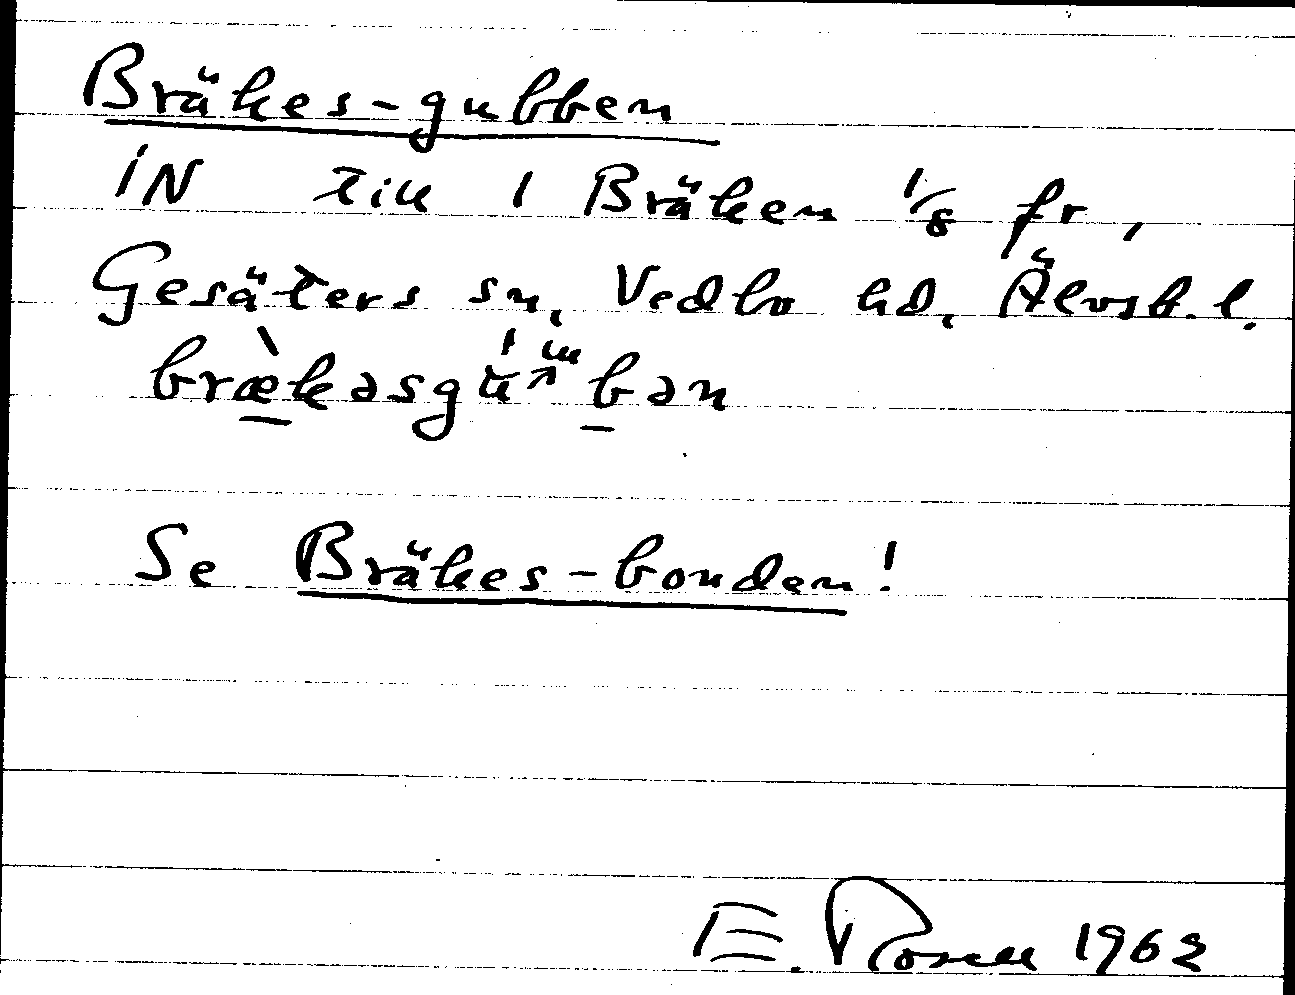 Bräkes-gubben
iN till 1 Bräken 1/8 fr,
Gesäters sn, Vedbo hd. Älvsb. l.
Se Bräkes-bonden!
E. Rosell 1962